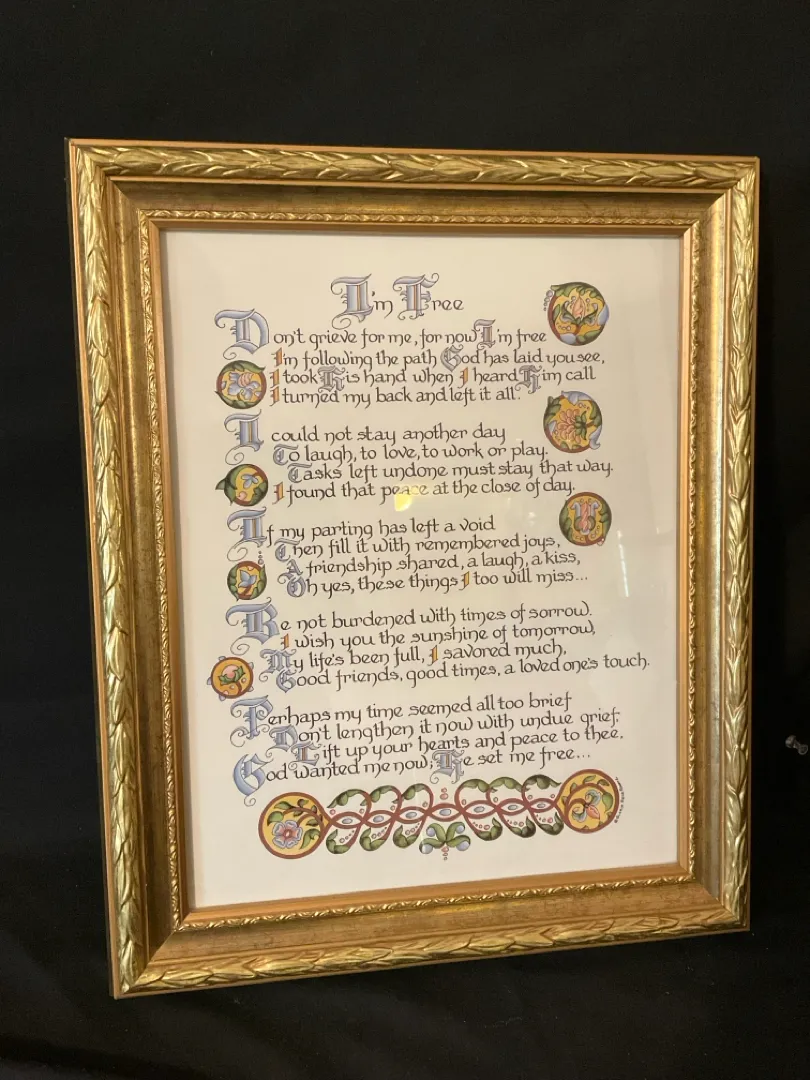 I'm Free
Don't grieve for me, for now I'm free
I'm following the path God has laid you see,
I took His hand when I heard Him call
I turned my back and left it all.
I could not stay another day
To laugh, to love, to work or play.
Tasks left undone must stay that way.
I found that peace at the close of day.
If my parting has left a void
Then fill it with remembered joys,
A friendship shared, a laugh, a kiss,
Oh yes, these things I too will miss...
Be not burdened with times of sorrow.
I wish you the sunshine of tomorrow,
My life's been full, I savored much,
Good friends, good times, a loved one's touch.
Perhaps my time seemed all too brief
Don't lengthen it now with undue grief;
Lift up your hearts and peace to thee.
God wanted me now; He set me free...